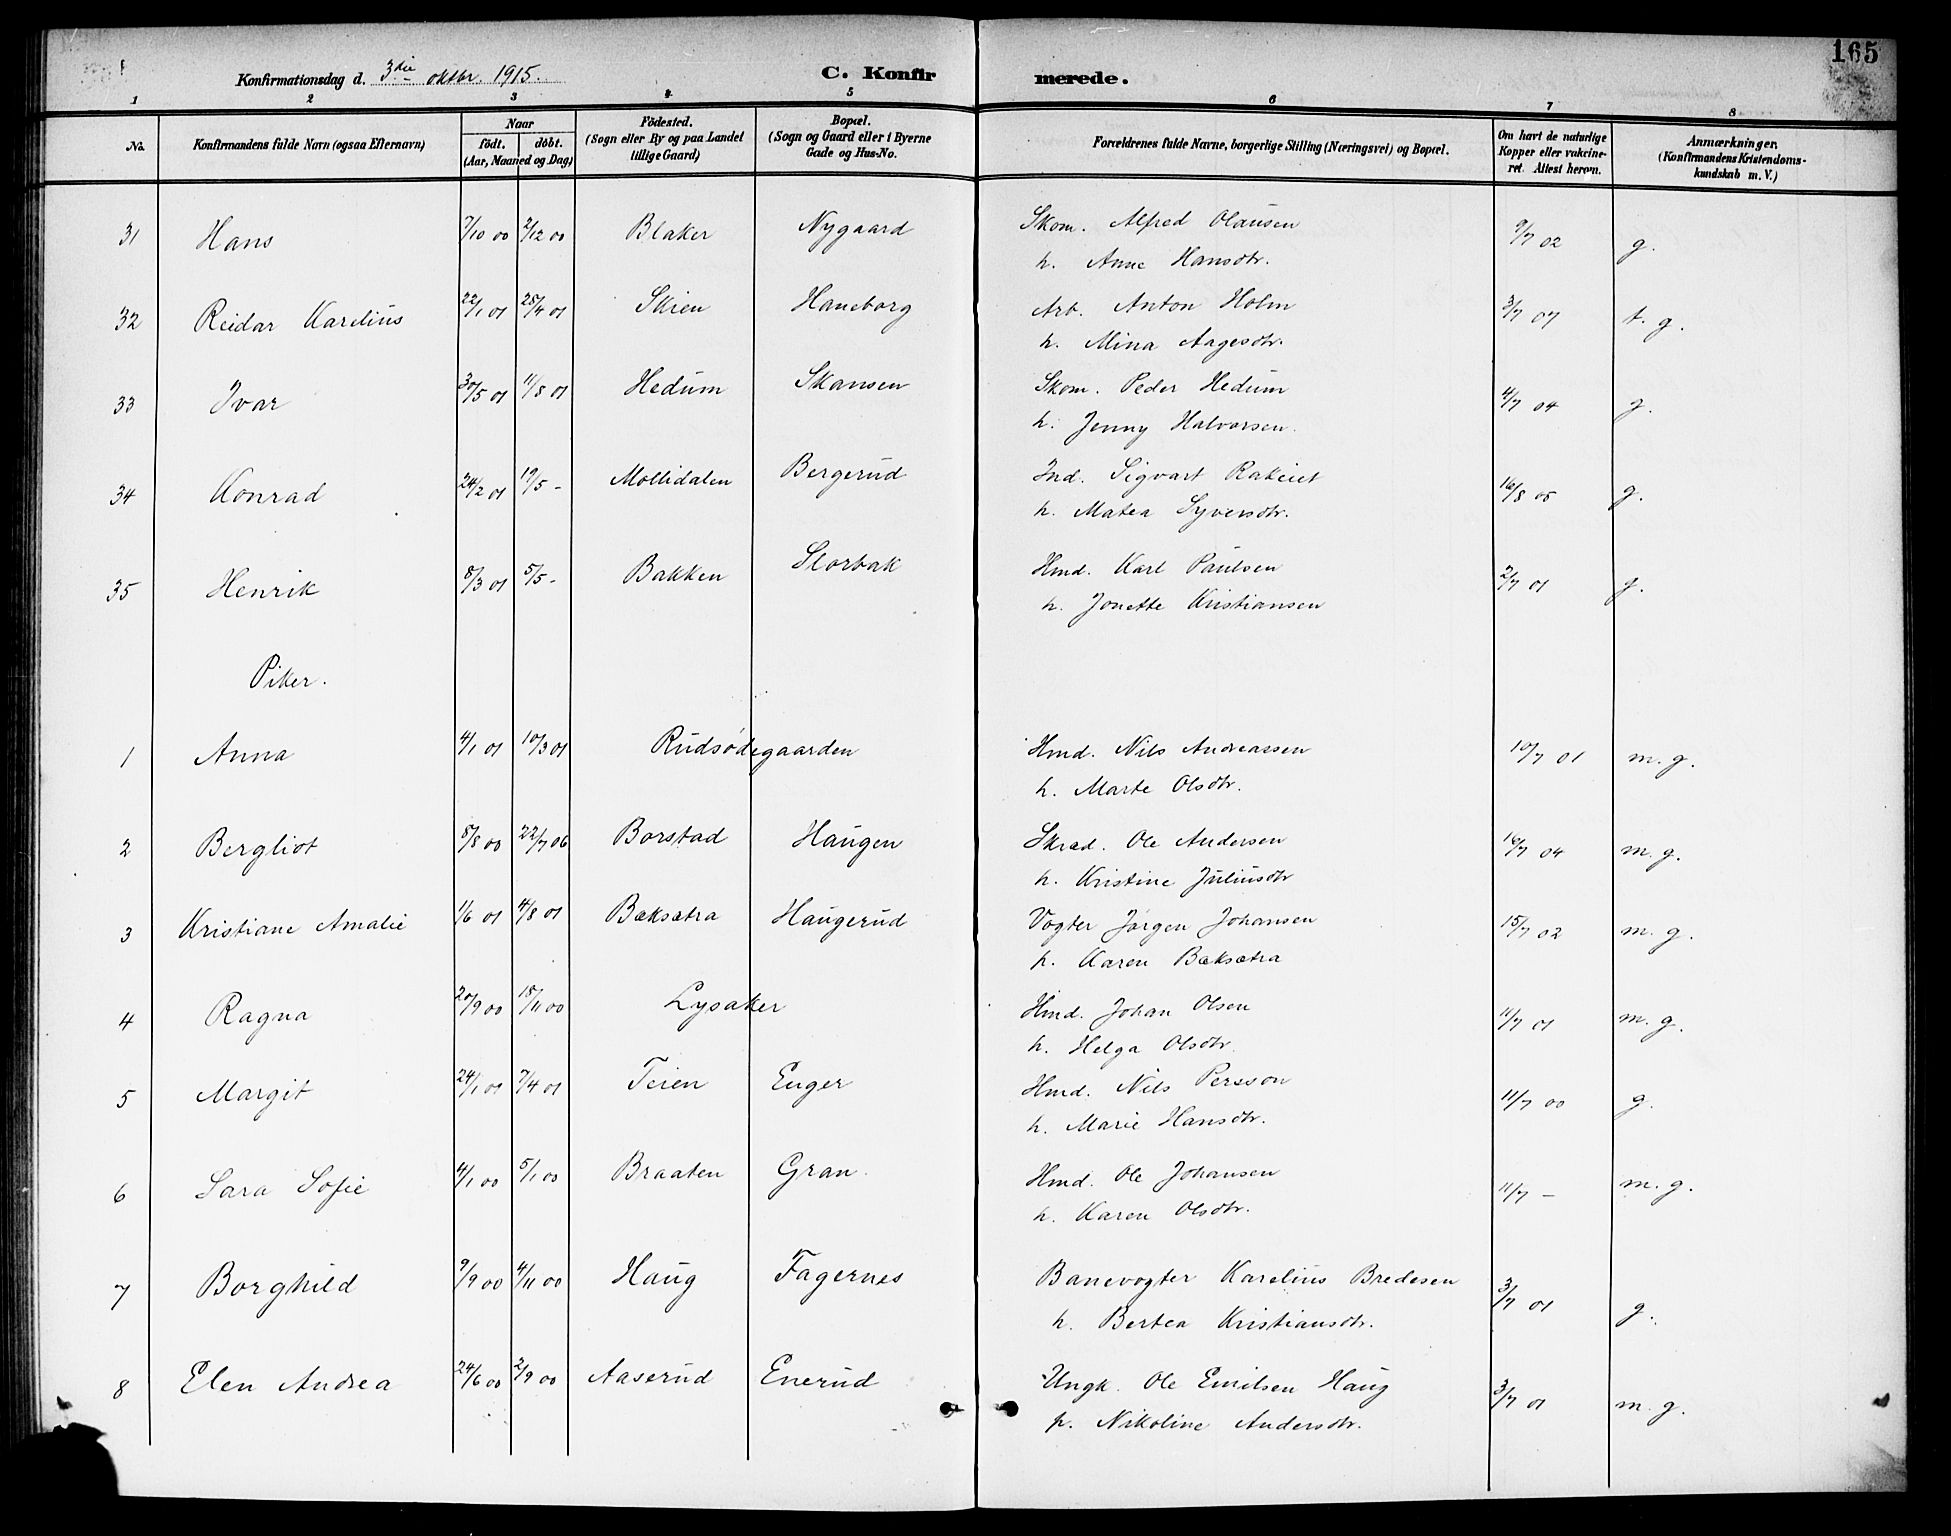 165
Konfirmationsdag d. 3die oktbr. 1915.
C. Konfirmerede.
1 2 3 4 5 6 7 8
No. Konfirmandens fulde Navn (ogsaa Efternavn) Naar født. døbt. (Aar, Maaned og Dag) Fødested. (Sogn eller By og paa Landet tillige Gaard) Bopæl. (Sogn og Gaard eller i Byerne Gade og Hus-No. Forældrenes fulde Navne, borgerlige Stilling (Næringsvei) og Bopæl. Om havt de naturlige Kopper eller vakcineret. Attest herom. Anmærkninger. (Konfirmandens Kristendomskundskab m. V.)
31 Hans 7/10 00 2/12 00 Blaker Nygaard Skom. Alfred Olausen 9/7 02 g.
h. Anne Hansdtr.
32 Reidar Karelius 22/1 01 28/4 01 Skien Haneborg Arb. Anton Holm 3/7 07 t. g.
h. Mina Aagesdtr.
33 Ivar 30/5 01 11/8 01 Hedum Skansen Skom. Peder Hedum 4/7 04 g.
h. Jenny Halvorsen.
34 Konrad 24/2 01 19/5 - Mollidalen Bergerud Ind. Sigvart Rakeiet 16/8 05 g.
h. Matea Syversdtr.
35 Henrik 8/3 01 5/5 - Bakken Storbak Hmd. Karl Paulsen 2/7 01 g.
h. Jonette Kristiansen
Piker.
1 Anna 4/1 01 10/3 01 Rudsødegaarden Hmd. Nils Andreassen 10/7 01 m. g.
h. Marte Olsdtr.
2 Bergliot 8/8 00 22/7 06 Borstad Haugen Skræd. Ole Andersen 16/7 04 m. g.
h. Kristine Juliusdtr
3 Kristiane Amalie 1/6 01 4/8 01 Bæksætra Haugerud Vogter Jørgen Johansen 15/7 02 m. g.
h. Karen Bæksætra
4 Ragna 20/9 00 18/11 00 Lysaker Hmd. Johan Olsen 11/7 01 m. g.
h. Helga Olsdtr.
5 Margit 24/1 01 7/4 01 Teien Enger Hmd. Nils Persson 11/7 00 g.
h. Marie Hansdtr.
6 Sara Sofie 4/1 00 5/1 00 Braaten Gran. Hmd. Ole Johansen 11/7 - m. g.
h. Karen Olsdtr.
7 Borghild 9/9 00 4/11 00 Haug Fagernes Banevogter Karelius Bredesen 3/7 01 g.
h. Bertea Kristiansdtr.
8 Elen Andrea 24/6 00 2/9 00 Aaserud Enerud Ungk. Ole Emilsen Haug 3/7 01 m. g.
p. Nikoline Andersdtr.